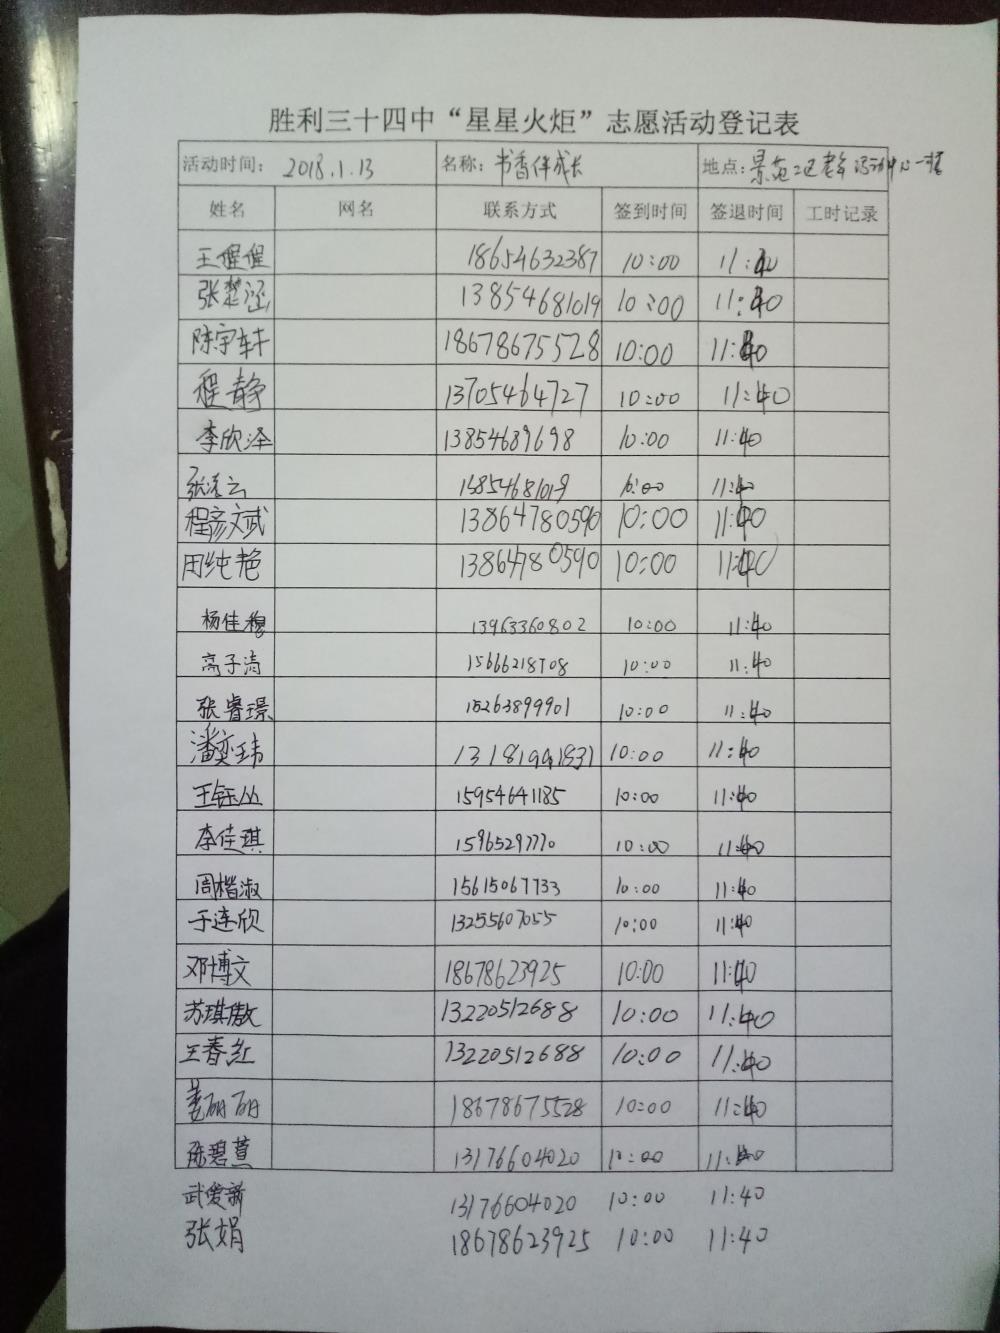 胜利三十四中“星星火炬”志愿活动登记表
活动时间: 2018.1.13 名称: 书香伴成长 地点: 景苑二区老年活动中心一楼
姓名 网名 联系方式 签到时间 签退时间 工时记录
王偓偓 18654632387 10:00 11:40
张楚涵 13854681019 10:00 11:40
陈宇轩 18678675528 10:00 11:40
程静 13705464727 10:00 11:40
李欣泽 13854689698 10:00 11:40
张云 13854681019 10:00 11:40
程彦斌 13864780590 10:00 11:40
田纯艳 13864780590 10:00 11:40
杨佳穆 13963360802 10:00 11:40
高子清 15666218708 10:00 11:40
张睿璟 15263899901 10:00 11:40
潘奕玮 13181991831 10:00 11:40
王钰丛 15954641185 10:00 11:40
李佳琪 15965297770 10:00 11:40
周楷淑 15615067733 10:00 11:40
于连欣 13255607055 10:00 11:40
邓博文 18678623925 10:00 11:40
苏琪傲 13220512688 10:00 11:40
王春红 13220512688 10:00 11:40
姜丽丽 18678675528 10:00 11:40
陈碧萱 13176604020 10:00 11:40
武爱新 13176604020 10:00 11:40
张娟 18678623925 10:00 11:40